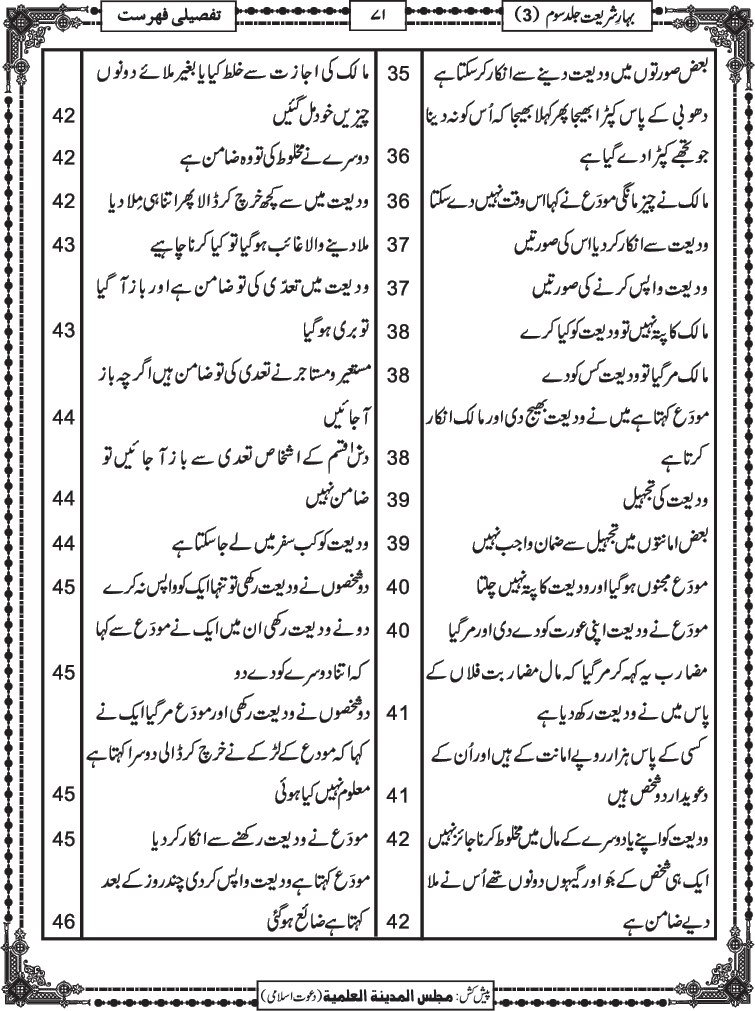 بہارِ شریعت جلد سوم (3)
۷۱
تفصیلی فہرست
بعض صورتوں میں ودیعت دینے سے انکار کر سکتا ہے 35
دھوبی کے پاس کپڑا بھیجا پھر کہلا بھیجا کہ اُس کو نہ دینا
جو تجھے کپڑا دے گیا ہے 36
مالک نے چیز مانگی مودَع نے کہا اس وقت نہیں دے سکتا 36
ودیعت سے انکار کر دیا اس کی صورتیں 37
ودیعت واپس کرنے کی صورتیں 37
مالک کا پتہ نہیں تو ودیعت کو کیا کرے 38
مالک مر گیا تو ودیعت کس کو دے 38
مودَع کہتا ہے میں نے ودیعت بھیج دی اور مالک انکار
کرتا ہے 38
ودیعت کی تجہیل 39
بعض امانتوں میں تجہیل سے ضمان واجب نہیں 39
مودَع مجنوں ہو گیا اور ودیعت کا پتہ نہیں چلتا 40
مودَع نے ودیعت اپنی عورت کو دے دی اور مر گیا 40
مضارب یہ کہہ کر مر گیا کہ مال مضاربت فلاں کے
پاس میں نے ودیعت رکھ دیا ہے 41
کسی کے پاس ہزار روپے امانت کے ہیں اور اُن کے
دعویدار دو شخص ہیں 41
ودیعت کو اپنے یا دوسرے کے مال میں مخلوط کرنا جائز نہیں 42
ایک ہی شخص کے جَو اور گیہوں دونوں تھے اُس نے ملا
دیے ضامن ہے 42
مالک کی اجازت سے خلط کیا یا بغیر ملائے دونوں
چیزیں خود مل گئیں 42
دوسرے نے مخلوط کی تو وہ ضامن ہے 42
ودیعت میں سے کچھ خرچ کر ڈالا پھر اتنا ہی مِلا دیا 42
ملا دینے والا غائب ہو گیا تو کیا کرنا چاہیے 43
ودیعت میں تعدّی کی تو ضامن ہے اور باز آ گیا
تو بری ہو گیا 43
مستعیر و مستاجر نے تعدی کی تو ضامن ہیں اگرچہ باز
آجائیں 44
دس قسم کے اشخاص تعدی سے باز آ جائیں تو
ضامن نہیں 44
ودیعت کو کب سفر میں لے جا سکتا ہے 44
دو شخصوں نے ودیعت رکھی تو تنہا ایک کو واپس نہ کرے 45
دو نے ودیعت رکھی ان میں ایک نے مودَع سے کہا
کہ اتنا دوسرے کو دے دو 45
دو شخصوں نے ودیعت رکھی اور مودَع مر گیا ایک نے
کہا کہ مودع کے لڑکے نے خرچ کر ڈالی دوسرا کہتا ہے
معلوم نہیں کیا ہوئی 45
مودَع نے ودیعت رکھنے سے انکار کر دیا 45
مودَع کہتا ہے ودیعت واپس کر دی چند روز کے بعد
کہتا ہے ضائع ہو گئی 46
پیش کش: مجلس المدینة العلمیة (دعوت اسلامی)